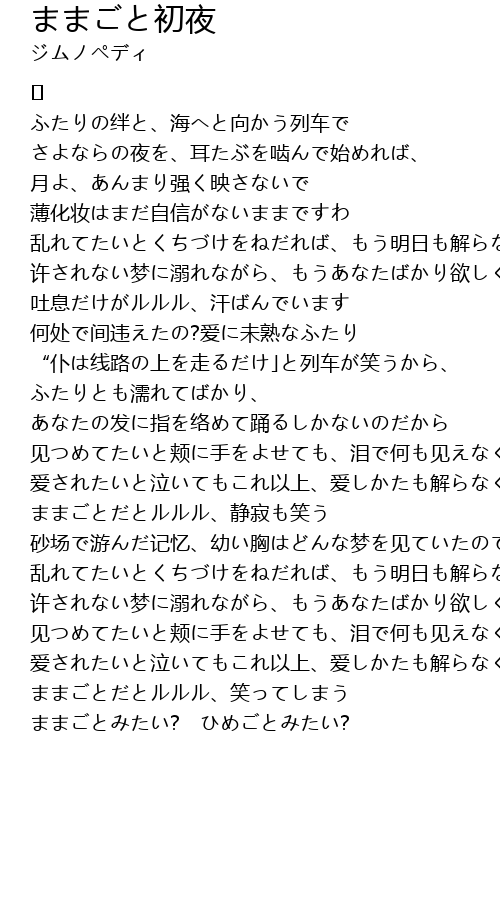 ままごと初夜
ジムノペディ
ふたりの绊と、海へと向かう列车で
さよならの夜を、耳たぶを啮んで始めれば、
月よ、あんまり强く映さないで
薄化妆はまだ自信がないままですわ
乱れてたいとくちづけをねだれば、もう明日も解らな
许されない梦に溺れながら、もうあなたばかり欲しく
吐息だけがルルル、汗ばんでいます
何处で间违えたの?爱に未熟なふたり
“仆は线路の上を走るだけ｣と列车が笑うから、
ふたりとも濡れてばかり、
あなたの发に指を络めて踊るしかないのだから
见つめてたいと颊に手をよせても、泪で何も见えなく
爱されたいと泣いてもこれ以上、爱しかたも解らなく
ままごとだとルルル、静寂も笑う
砂场で游んだ记忆、幼い胸はどんな梦を见ていたので
乱れてたいとくちづけをねだれば、もう明日も解らな
许されない梦に溺れながら、もうあなたばかり欲しく
见つめてたいと颊に手をよせても、泪で何も见えなく
爱されたいと泣いてもこれ以上、爱しかたも解らなく
ままごとだとルルル、笑ってしまう
ままごとみたい?　ひめごとみたい?